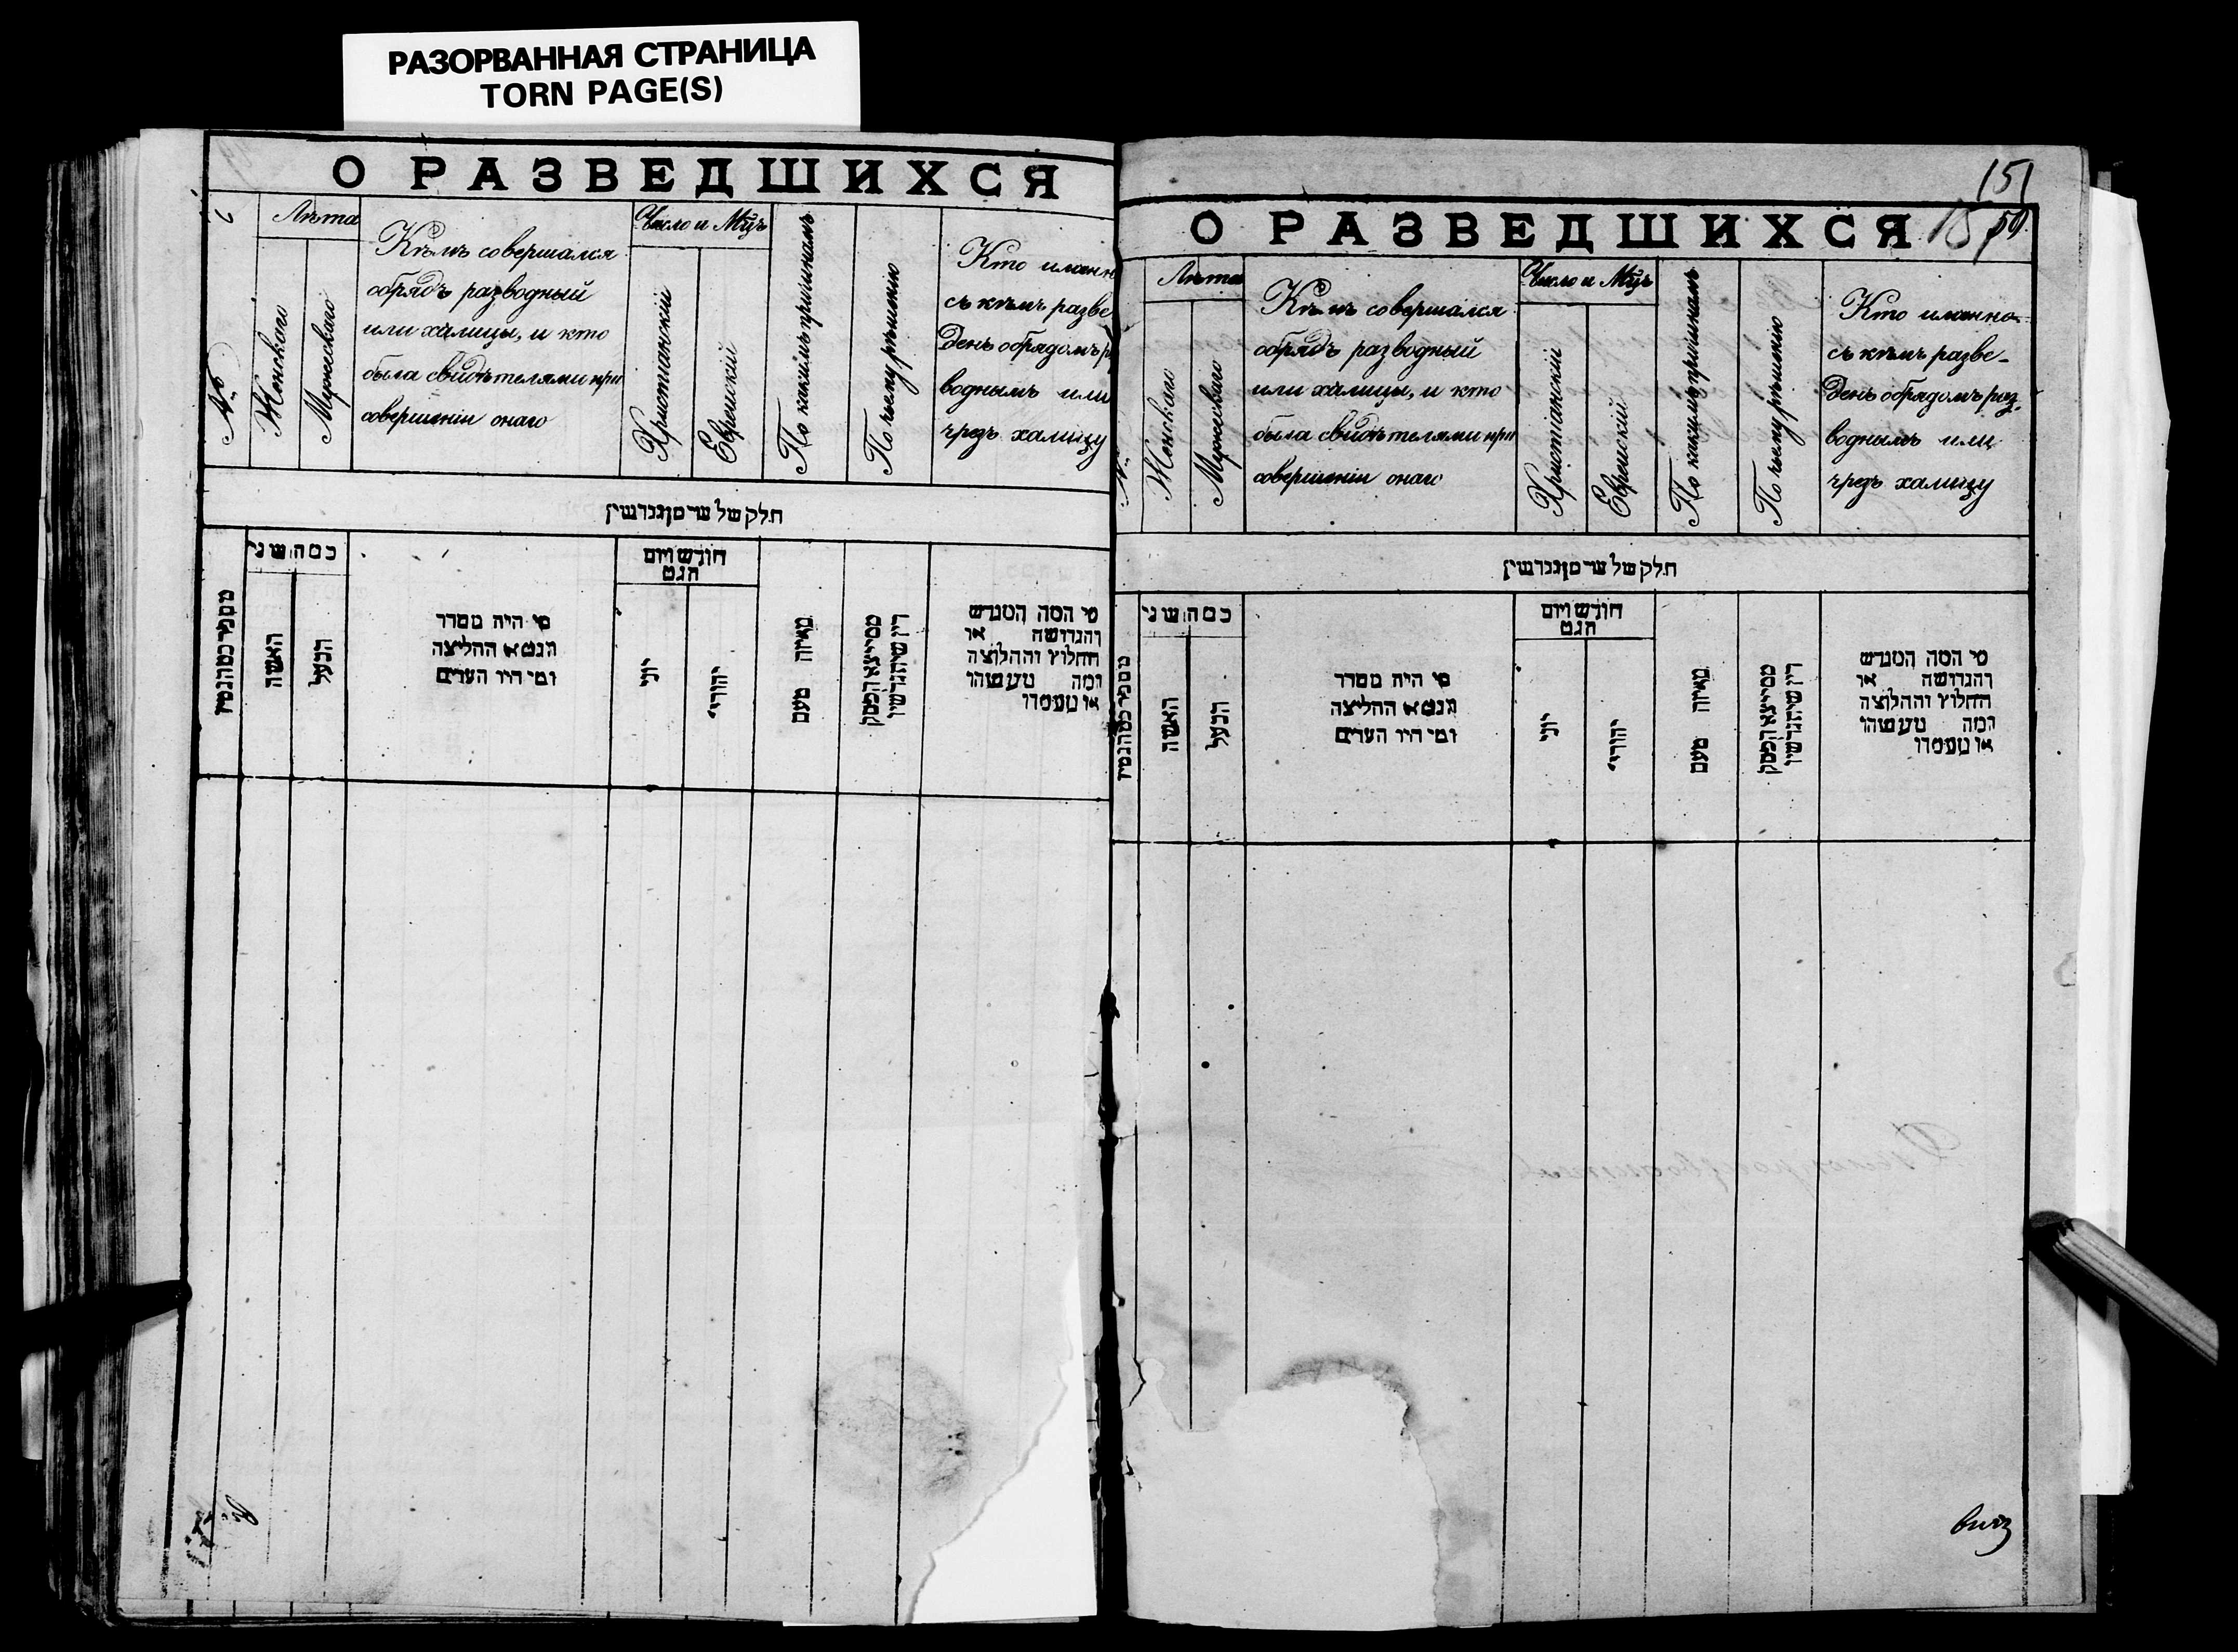 РАЗОРВАННАЯ СТРАНИЦА
TORN PAGE(S)
О РАЗВЕДШИХСЯ
№
Лѣта
Женскаго
Мужескаго
Кѣмъ совершался
обрядъ разводный
или халицы, и кто
была свидѣтелями при
совершеніи онаго
Число и Мцъ
Христіанскій
Еврейскій
По какимъ причинамъ
По чьему рѣшенію
Кто именн
съ кѣмъ разве
денъ обрядомъ р
воднымъ или
чрезъ халицу
חלק של שי מן גרושין
כמה שני
האשה
הבעל
מי היה מסדר
הגט או החליצה
ומי היו העדים
חודש ויום
הגט
יוני
יהודי
מאיזה טעם
מי המה המגרש
והגרושה או
החולץ והחלוצה
ומה מעשהו
או מעמדו
151
О РАЗВЕДШИХСЯ
50
Лѣта
Женскаго
Мужескаго
Кѣмъ совершался
обрядъ разводный
или халицы, и кто
была свидѣтелями при
совершеніи онаго
Число и Мцъ
Христіанскій
Еврейскій
По какимъ причинамъ
По чьему рѣшенію
Кто именно
съ кѣмъ разве-
денъ обрядомъ раз-
воднымъ или
чрезъ халицу
חלק של שי מן גרושין
כמה שני
האשה
הבעל
מי היה מסדר
הגט או החליצה
ומי היו העדים
חודש ויום
הגט
יוני
יהודי
מאיזה טעם
מי המה המגרש
והגרושה או
החולץ והחלוצה
ומה מעשהו
או מעמדו